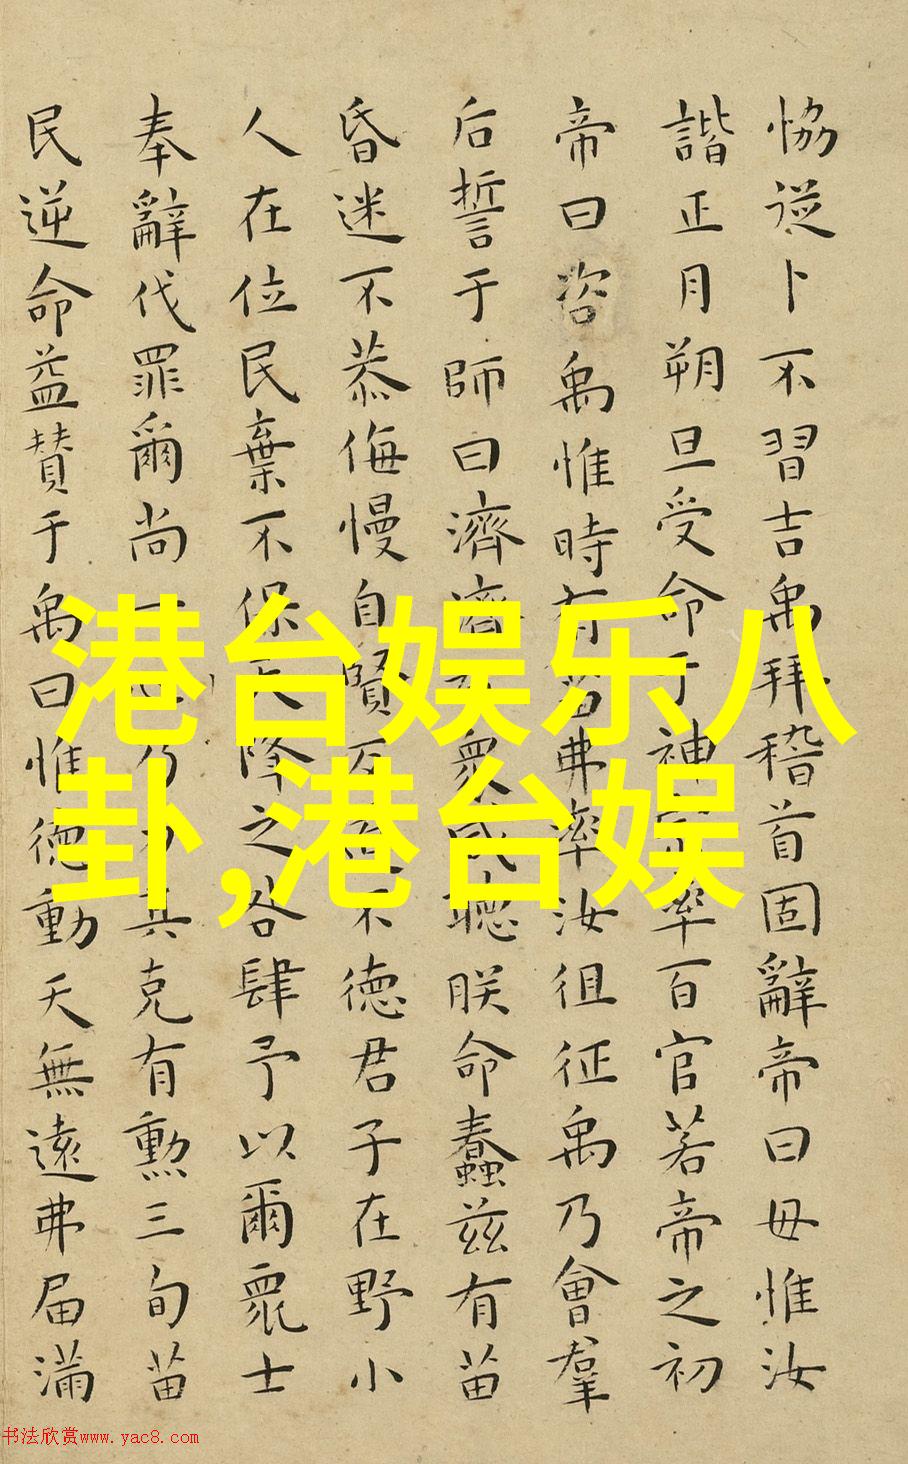 恊從卜不習吉禹拜稽首固辭帝曰毋惟汝
諧正月朔旦受命于神率百官若帝之初
帝曰咨禹惟時有苗弗率汝徂征禹乃會羣
后誓于師曰濟濟有衆咸聽朕命蠢兹有苗
昏迷不恭侮慢自賢不德君子在野小
人在位民棄不保天降之咎肆予以爾衆士
奉辭伐罪爾尚一乃力其克有勲三旬苗
民逆命益贊于禹曰惟德動天無遠弗届滿
港台娱乐八
卦,港台娱
书法欣赏www.yac8.com